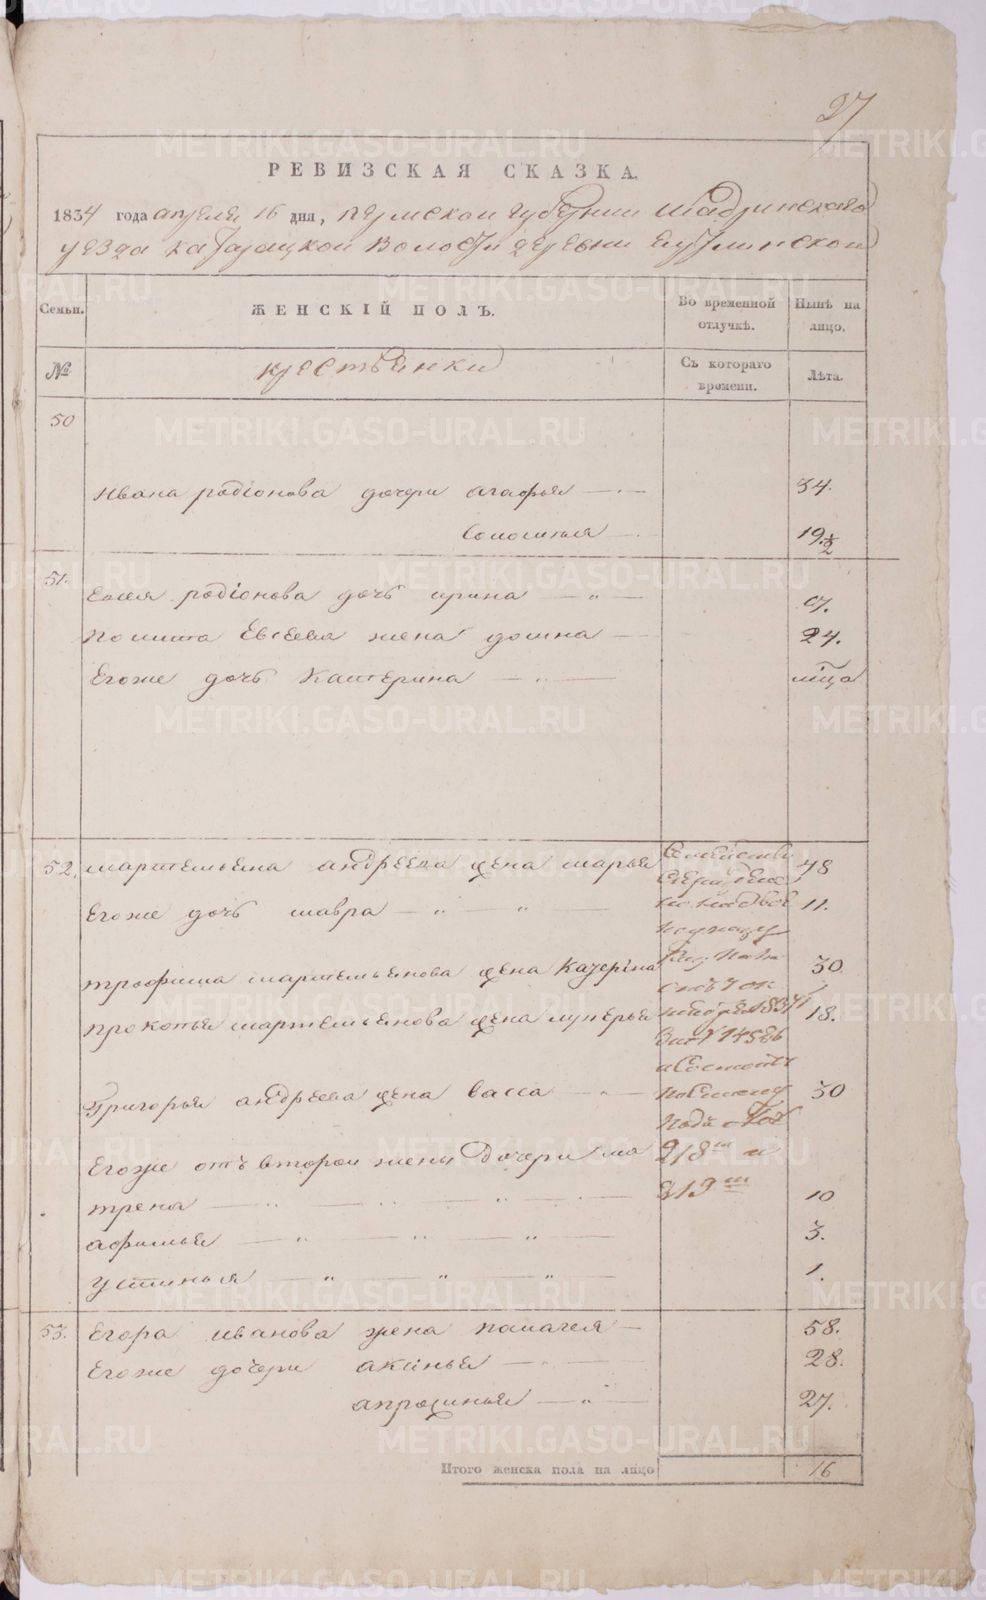 27
РЕВИЗСКАЯ СКАЗКА.
1834 года апреля 16 дня, пермской губернии Шадринскаго
уезда катайской волости деревни
Семьи. ЖЕНСКІЙ ПОЛЪ. Во временной отлучкѣ. Нынѣ на лицо.
№ крестьянки Съ котораго времени. Лѣта.
50
ивана родіонова дочери агафья 34.
соломея 19 1/2
51.
елея родіонова дочь ирина 9.
евсеева жена домна 24.
егоже дочь катерина
52. мартемьяна андреева жена марья 48
егоже дочь мавра 11.
трофима мартемьянова жена кат 30
прокопья мартемьянова жена лукерья 18.
григорья андреева жена васса 30
егоже отъ второй жены дочери ма
218 и
трена 10
219
афимья 3.
устинья 1.
53. егора иванова жена палагея 58.
егоже дочери аксинья 28.
апросинья 27.
Итого женска пола на лицо 16
METRIKI.GASO-URAL.RU